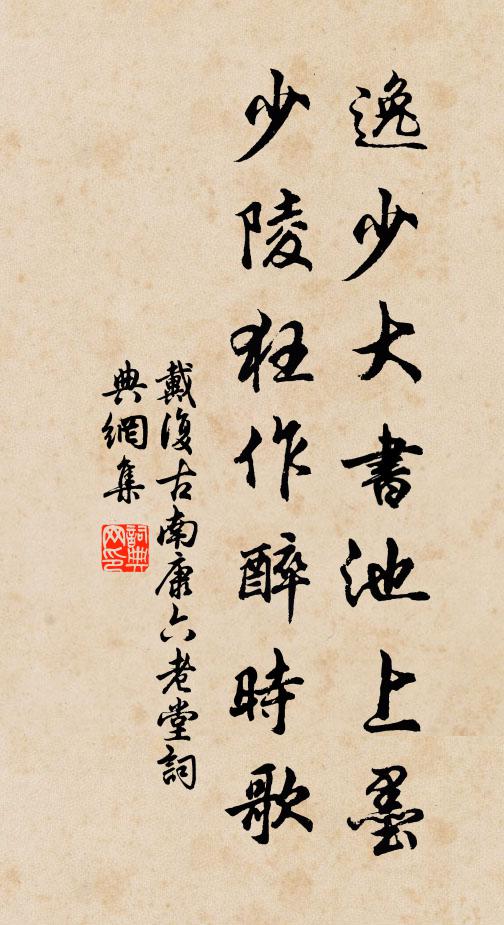 逸少大書池上墨
少陵狂作醉時歌
戴復古南康六老堂詞
典網集
詞典網印